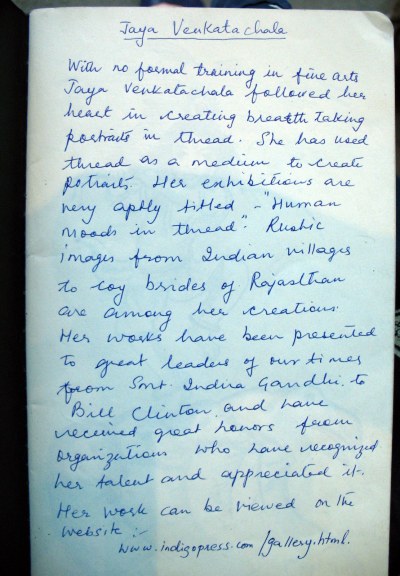 Jaya Venkatachala
With no formal training in fine arts
Jaya Venkatachala followed her
heart in creating breatth taking
portraits in thread. She has used
thread as a medium to create
potraits. Her exhibitions are
very aptly titled - "Human
moods in thread". Rustic
images from Indian villages
to coy brides of Rajasthan
are among her creations.
Her works have been presented
to great leaders of our times
from Smt. Indira Gandhi to
Bill Clinton, and have
received great honors from
organizations who have recognized
her talent and appreciated it.
Her work can be viewed on the
website :-
www.indigopress.com/gallery.html.